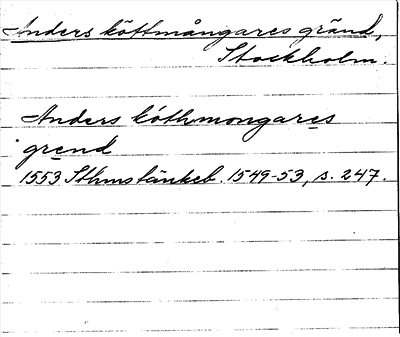 Anders köttmångares gränd,
Stockholm.
Anders köthmongares
grend
1553 Sthms tänkeb. 1549-53, s. 247.